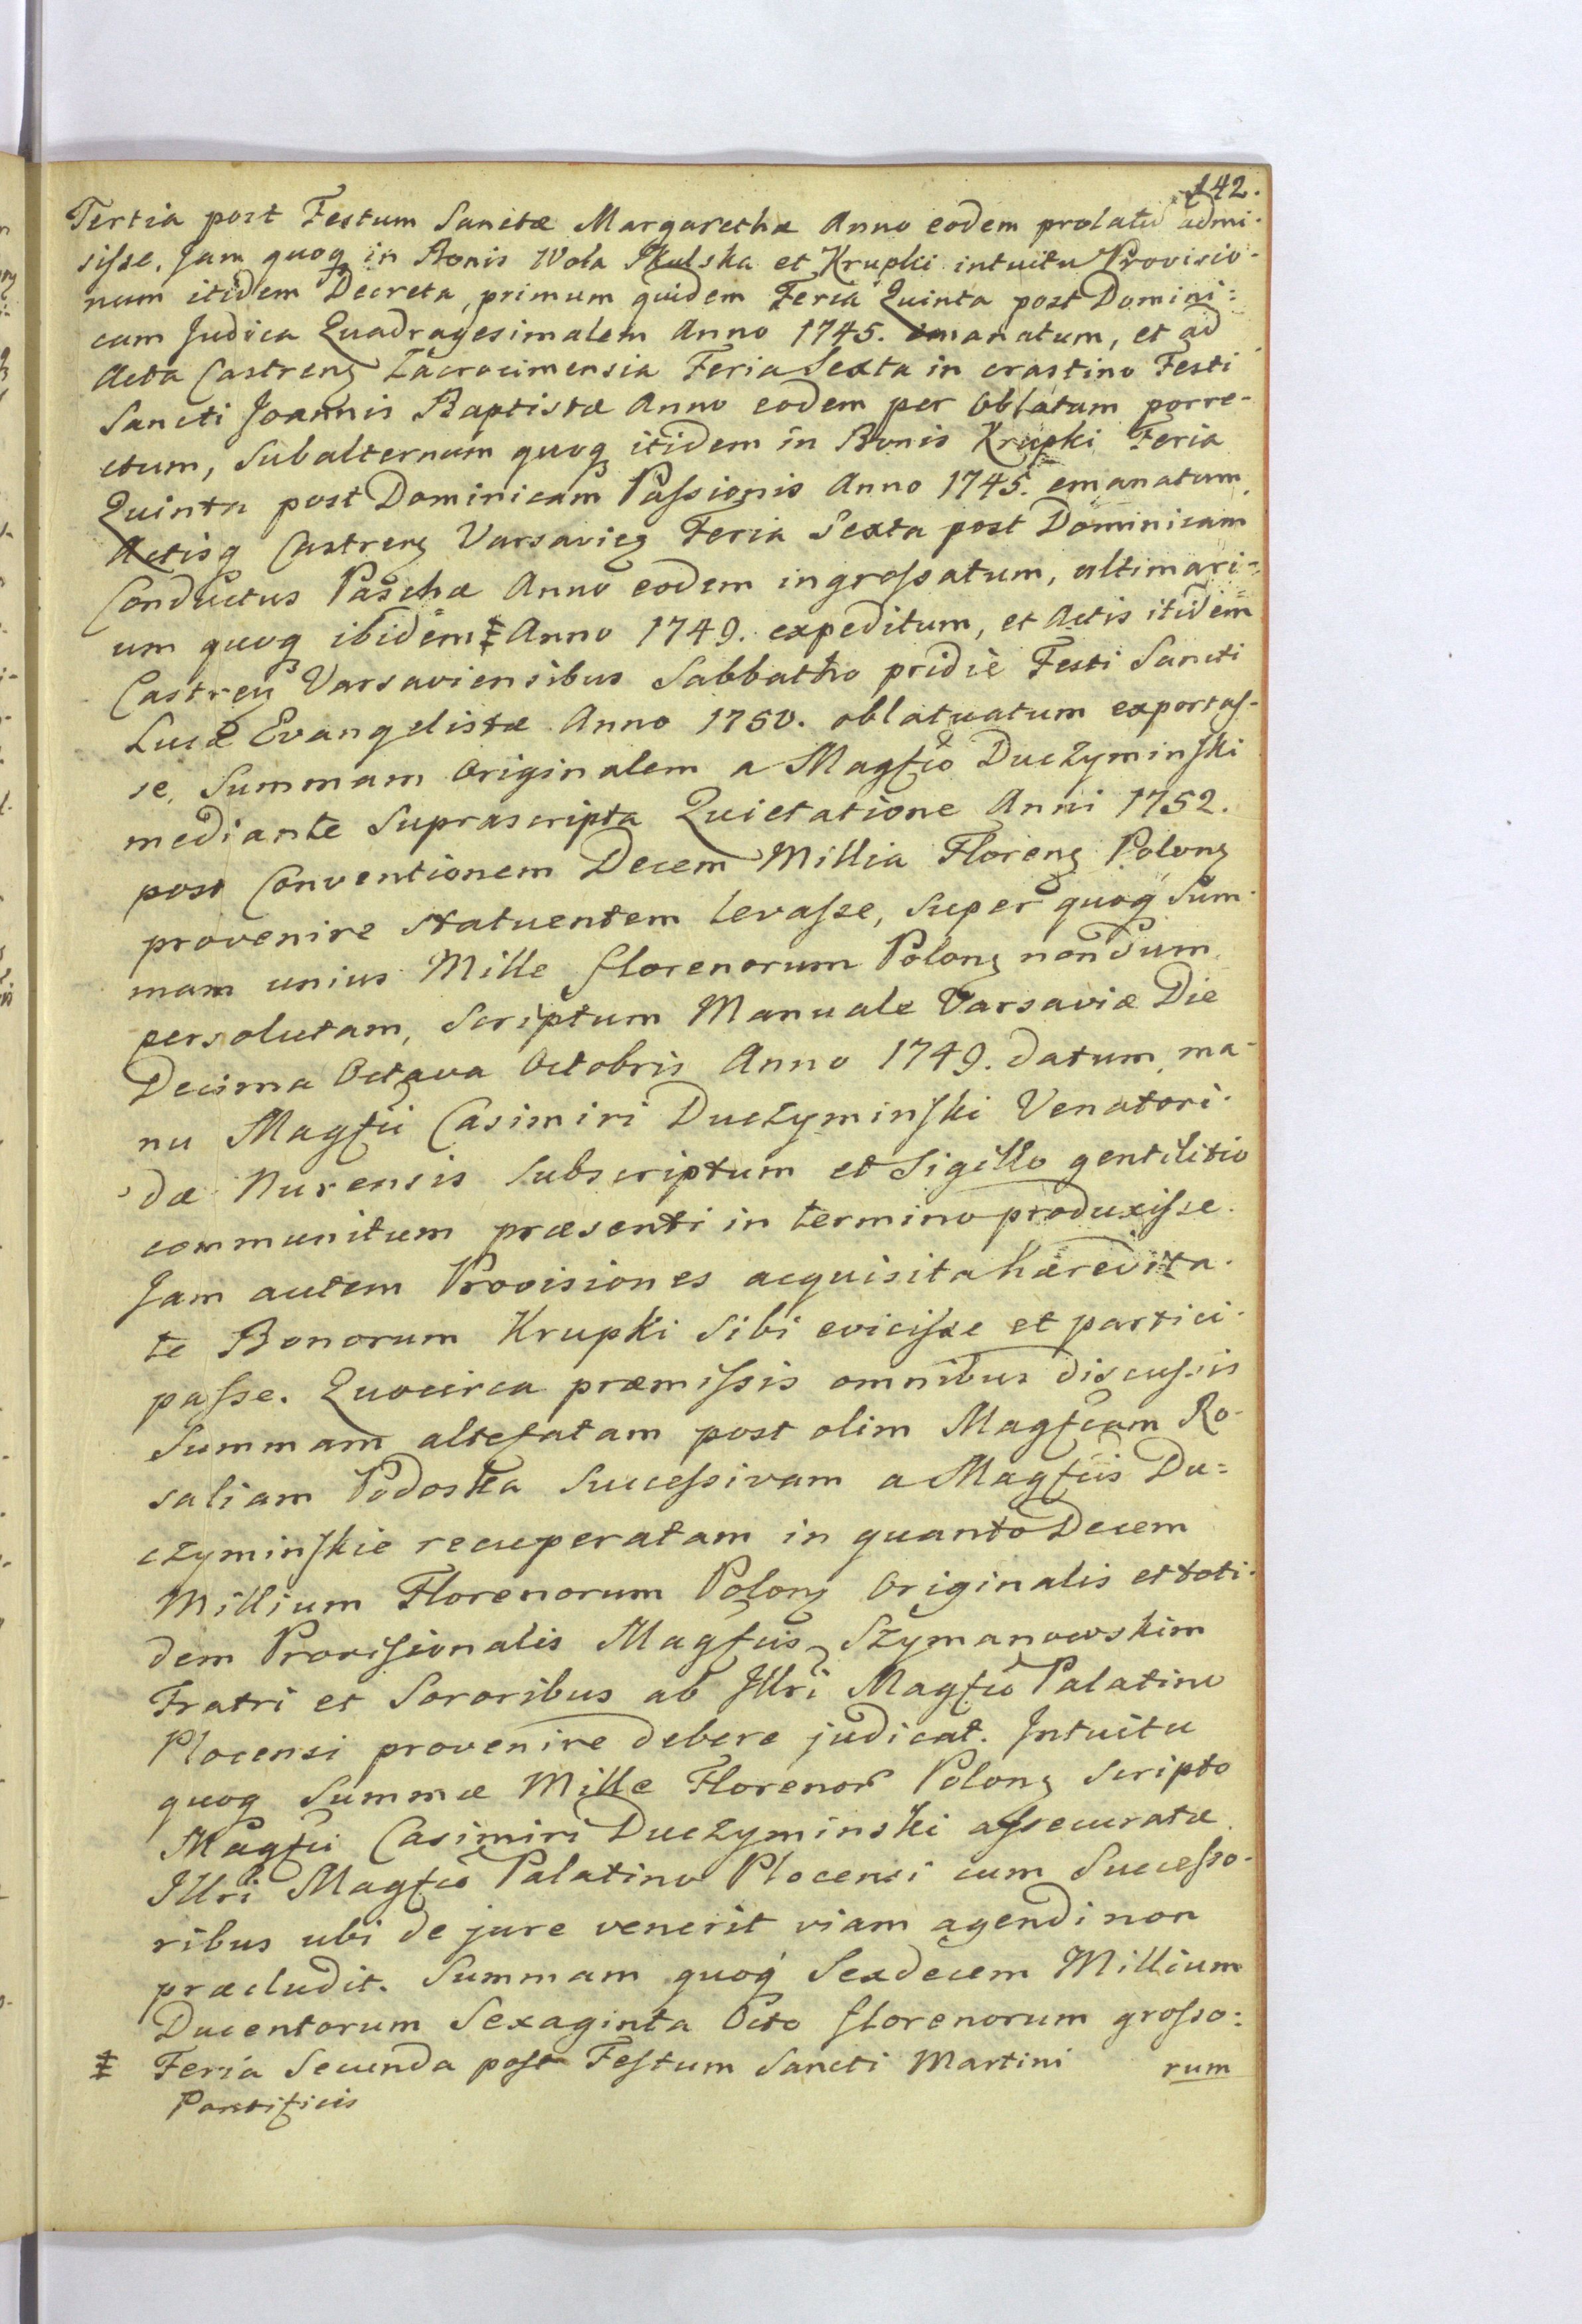 142.
Tertia post Festum Sanctæ Margarethæ Anno eodem prolatũ admi-
siſse. Jam quoq in Bonis Wola Skulska et Krupki intuitu Provisio-
num itidem Decreta, primum quidem Feria Quinta post Domini:
cam Judica Quadragesimalem Anno 1745. emanatum, et ad
Acta Castreng Zacrocimensia Feria Sexta in crastino Festi
Sancti Joannis Baptistæ Anno eodem per Oblatam porre-
ctum, Subalternum quoq itidem in Bonis Krupki Feria
Quinta post Dominicam Paſsionis Anno 1745. emanatum,
Actisq Castreng Varsavieg Feria Sexta post Dominicam
Conductus Paschæ Anno eodem ingroſsatum, ultimari-
um quoq ibidem ‡ Anno 1749. expeditum, et Actis itidem
Castreg Varsaviensibus Sabbatho pridie Festi Sancti
Lucæ Evangelistæ Anno 1750. oblatuatum exportaſ-
se, Summam Originalem a Magfcõ Duczyminſki
mediante Suprascripta Quietatione Anni 1752.
post Conventionem Decem Millia Floreng Polong
provenire statuentem levaſse, super quoq Sum-
mam unius Mille florenorum Polong nondum
persolutam, Scriptum Manuale Varsaviæ Die
Decima Octava Octobris Anno 1749. datum, ma-
nu Magfci Casimiri Duczyminſki Venatori-
dæ Nurensis subscriptum et Sigillo gentilitio
communitum præsenti in termino produxiſse.
Jam autem Provisiones acquisita hæredita-
te Bonorum Krupki sibi eviciſse et partici-
paſse. Quocirca præmiſsis omnibus discuſsis
Summam altefatam post olim Magfcam Ro-
saliam Podoska Succeſsivam a Magfcis Du=
czyminſkie recuperatam in quanto Decem
Millium Florenorum Polong Originalis et toti-
dem Proviſionalis Magfcis Szymanowskim
Fratri et Sororibus ab Illri Magfcõ Palatino
Plocensi provenire debere judicat. Intuitu
quoq Summæ Mille Florenor Polong Scripto
Magfci Casimiri Duczyminski aſsecuratæ
Illri Magfcõ Palatino Plocensi cum Succeſso-
ribus ubi de jure venerit viam agendi non
præcludit. Summam quoq Sexdecem Millium
Ducentorum Sexaginta Octo florenorum groſso:
‡ Feria Secunda poſt Feſtum Sancti Martini rum
Pontificis